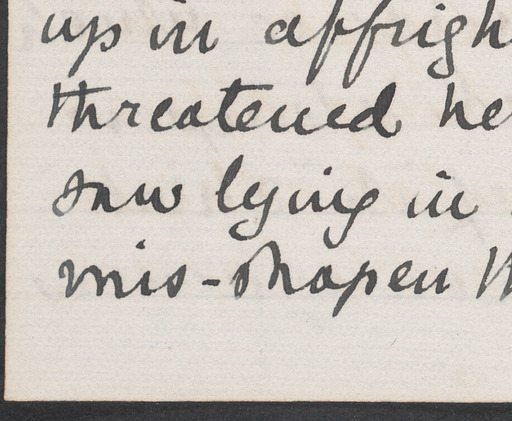 up in affrigh
threatened he
saw lying in
mis-shapen